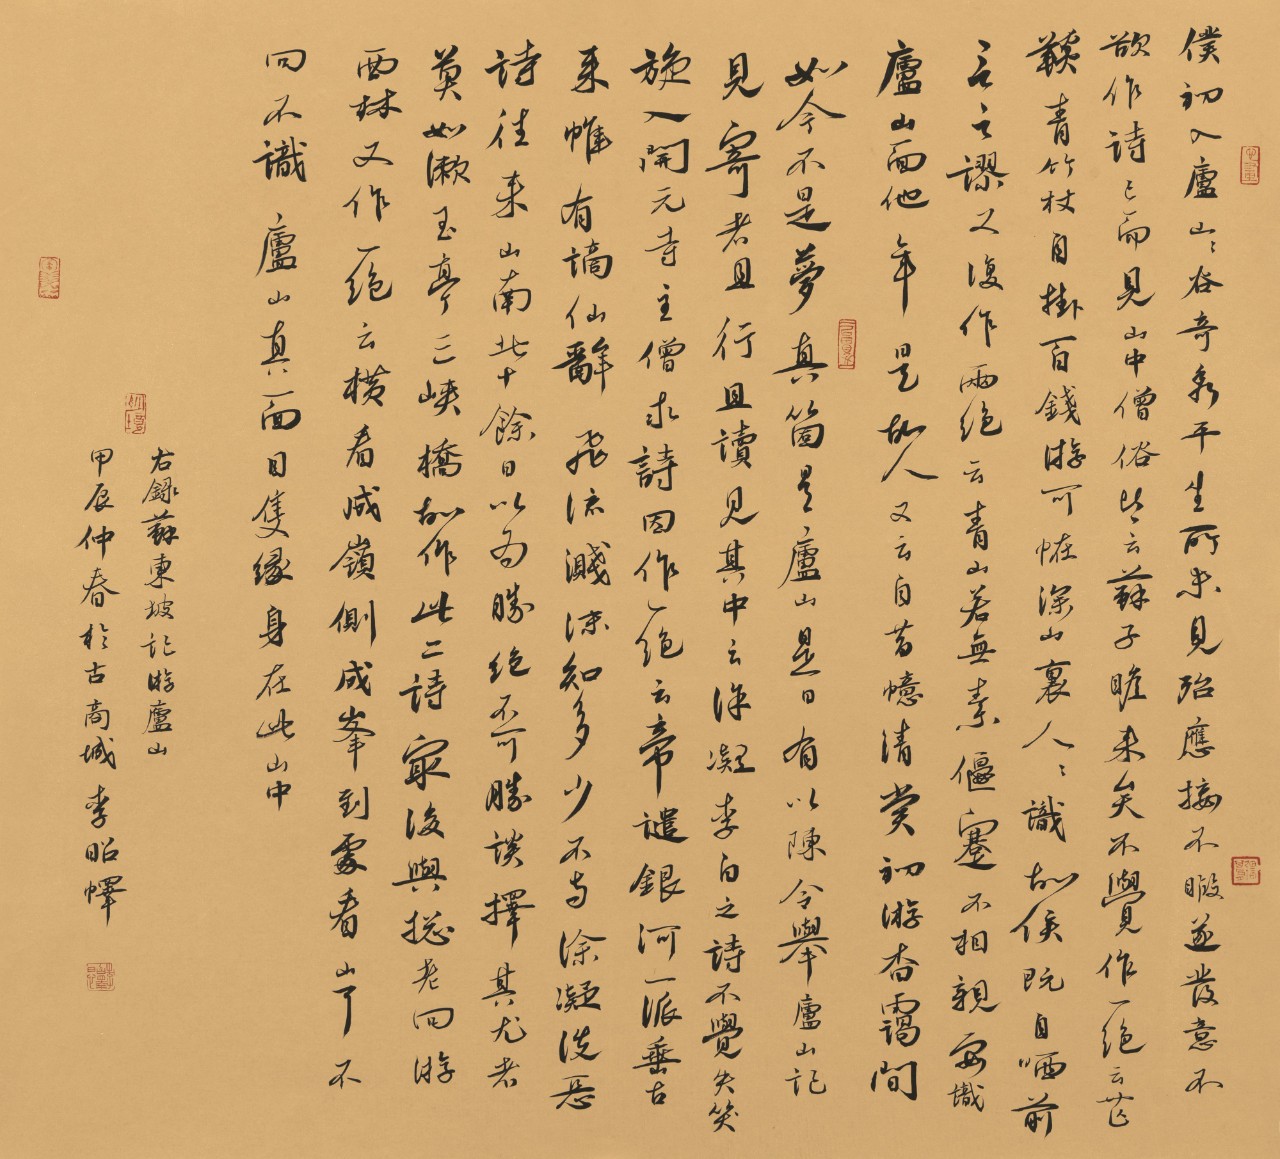 僕初入廬山山谷奇秀平生所未見殆應接不暇遂發意不
欲作詩已而見山中僧俗皆云蘇子瞻来矣不覺作一絕云芒
鞵青竹杖自掛百錢游可恠深山裏人人識故侯既自哂前
言之謬又復作兩絕云青山若無素偃蹇不相親要識
廬山面他年是故人又云自昔憶清賞初游杳靄間
如今不是夢真箇是廬山是日有以陳令舉廬山記
見寄者且行且讀見其中云徐凝李白之詩不覺失笑
旋入開元寺主僧求詩因作一絕云帝遣銀河一派垂古
来惟有謫仙辭飛流濺沫知多少不与徐凝洗惡
詩往来山南北十餘日以為勝絕不可勝談擇其尤者
莫如漱玉亭三峽橋故作此二詩寂後與摠老同游
西林又作一絕云橫看成嶺側成峯到處看山了不
同不識廬山真面目隻緣身在此山中
右録蘇東坡記游廬山
甲辰仲春於古商城李昭嶧